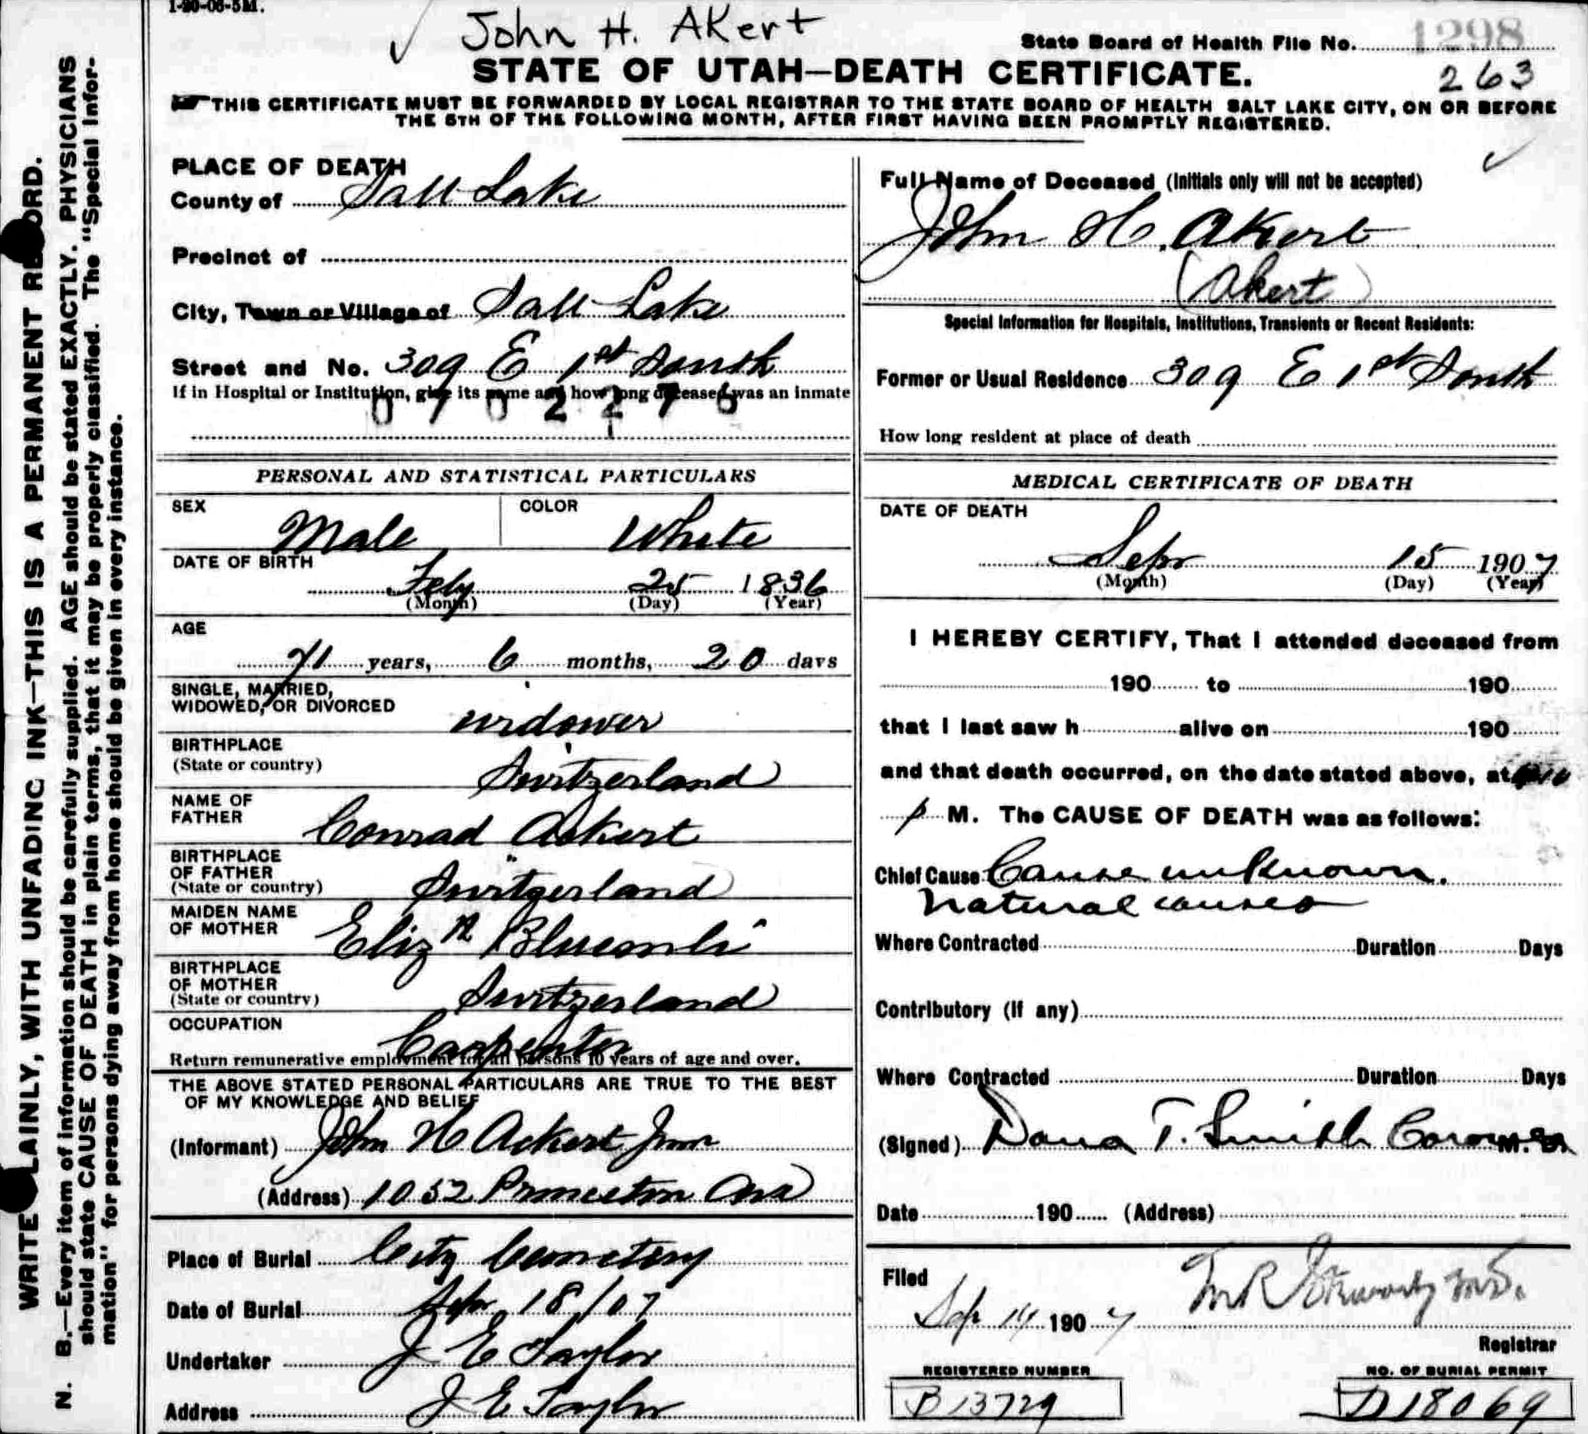 1-20-06-5M.
John H. Akert
State Board of Health File No. 1298
263
STATE OF UTAH—DEATH CERTIFICATE.
THIS CERTIFICATE MUST BE FORWARDED BY LOCAL REGISTRAR TO THE STATE BOARD OF HEALTH SALT LAKE CITY, ON OR BEFORE
THE 5TH OF THE FOLLOWING MONTH, AFTER FIRST HAVING BEEN PROMPTLY REGISTERED.
WRITE PLAINLY, WITH UNFADING INK—THIS IS A PERMANENT RECORD.
N. B.—Every item of information should be carefully supplied. AGE should be stated EXACTLY. PHYSICIANS
should state CAUSE OF DEATH in plain terms, that it may be properly classified. The "Special Infor-
mation" for persons dying away from home should be given in every instance.
PLACE OF DEATH
County of Salt Lake
Precinct of
City, Town or Village of Salt Lake
Street and No. 309 E 1st South
If in Hospital or Institution, give its name and how long deceased was an inmate
0702276
PERSONAL AND STATISTICAL PARTICULARS
SEX Male COLOR White
DATE OF BIRTH
Feby 25 1836
(Month) (Day) (Year)
AGE
71 years, 6 months, 20 days
SINGLE, MARRIED,
WIDOWED, OR DIVORCED widower
BIRTHPLACE
(State or country) Switzerland
NAME OF
FATHER Conrad Ackert
BIRTHPLACE
OF FATHER
(State or country) Switzerland
MAIDEN NAME
OF MOTHER Elizh Bluemli
BIRTHPLACE
OF MOTHER
(State or country) Switzerland
OCCUPATION Carpenter
Return remunerative employment for all persons 10 years of age and over.
THE ABOVE STATED PERSONAL PARTICULARS ARE TRUE TO THE BEST
OF MY KNOWLEDGE AND BELIEF
(Informant) John H Ackert Junr
(Address) 1052 Princeton Ave
Place of Burial City Cemetery
Date of Burial Sep. 18/07
Undertaker J E Taylor
Address J E Taylor
Full Name of Deceased (Initials only will not be accepted)
John H. Akert
(Akert)
Special Information for Hospitals, Institutions, Transients or Recent Residents:
Former or Usual Residence 309 E 1st South
How long resident at place of death
MEDICAL CERTIFICATE OF DEATH
DATE OF DEATH
Sepr 15 1907
(Month) (Day) (Year)
I HEREBY CERTIFY, That I attended deceased from
190 to 190
that I last saw h alive on 190
and that death occurred, on the date stated above, at
p M. The CAUSE OF DEATH was as follows:
Chief Cause Cause unknown.
Natural causes
Where Contracted Duration Days
Contributory (if any)
Where Contracted Duration Days
(Signed) Dana T. Smith Coroner M. D.
Date 190 (Address)
Filed
Sep 14 1907
Registrar
REGISTERED NUMBER NO. OF BURIAL PERMIT
B13729 D18069